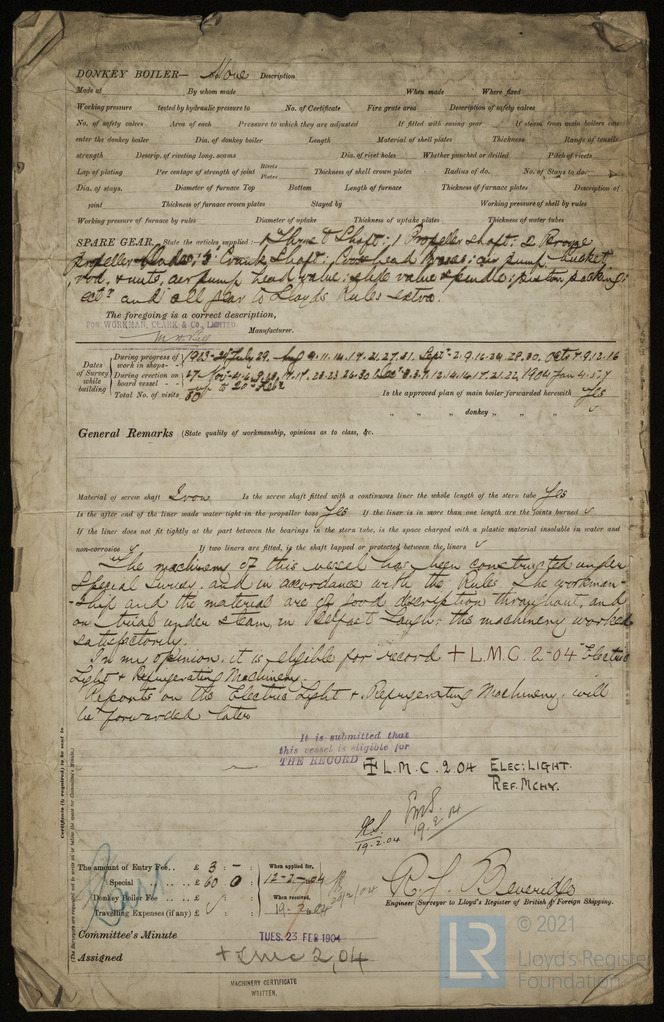 DONKEY BOILER— None Description
Made at By whom made When made Where fixed
Working pressure tested by hydraulic pressure to No. of Certificate Fire grate area Description of safety valves
No. of safety valves Area of each Pressure to which they are adjusted If fitted with easing gear If steam from main boilers can
enter the donkey boiler Dia. of donkey boiler Length Material of shell plates Thickness Range of tensile
strength Descrip. of riveting long. seams Dia. of rivet holes Whether punched or drilled Pitch of rivets
Lap of plating Per centage of strength of joint Rivets Plates Thickness of shell crown plates Radius of do. No. of Stays to do.
Dia. of stays. Diameter of furnace Top Bottom Length of furnace Thickness of furnace plates Description of
joint Thickness of furnace crown plates Stayed by Working pressure of shell by rules
Working pressure of furnace by rules Diameter of uptake Thickness of uptake plates Thickness of water tubes
SPARE GEAR. State the articles supplied:— 1 Thrust Shaft; 1 Propeller shaft; 2 Bronze
propeller blades; Crank Shaft; Crosshead Brasses; air pump bucket,
rod, & nuts, air pump head valve; slide valve & spindle; piston packing;
and all gear to Lloyds Rules extra.
The foregoing is a correct description,
FOR WORKMAN, CLARK & CO., LIMITED. Manufacturer.
Dates of Survey while building
During progress of work in shops - - 1903 July 29, Aug 9. 11. 14. 17. 21. 27. 31. Sept 2. 9. 16. 24. 28. 30. Oct 7. 9. 12. 16
During erection on board vessel - - 27 Nov 17. 23. 26. 30 Dec 12. 14. 16. 17. 21. 22. 1904 Jan 4. 5. 7
up to 20th Feb
Total No. of visits 50 Is the approved plan of main boiler forwarded herewith Yes
" " " donkey " " "
General Remarks (State quality of workmanship, opinions as to class, &c.
Material of screw shaft Iron Is the screw shaft fitted with a continuous liner the whole length of the stern tube Yes
Is the after end of the liner made water tight in the propeller boss Yes If the liner is in more than one length are the joints burned ✓
If the liner does not fit tightly at the part between the bearings in the stern tube, is the space charged with a plastic material insoluble in water and
non-corrosive ✓ If two liners are fitted, is the shaft lapped or protected between the liners ✓
The machinery of this vessel has been constructed under
Special Survey, and in accordance with the Rules. The workman-
-ship and the material are of good description throughout, and
on trial under steam, in Belfast Lough; the machinery worked
satisfactorily.
In my opinion, it is eligible for record + L.M.C. 2-04 Electric
Light & Refrigerating Machinery.
Reports on the Electric Light & Refrigerating Machinery, will
be forwarded later
It is submitted that
this vessel is eligible for
THE RECORD + L.M.C. 2 04 ELEC: LIGHT.
REF. MCHY.
19-2-04
19.2.04
Certificate (if required) to be sent to
(The Surveyors are requested not to write on or below the space for Committee's Minute.)
The amount of Entry Fee.. £ 3 : - : When applied for,
Special .... £ 60 : 0 : 12-2-04
Donkey Boiler Fee .... £ : : When received,
Travelling Expenses (if any) £ : : 19-2-04
R. J. Beveridge
Engineer Surveyor to Lloyd's Register of British & Foreign Shipping.
Committee's Minute TUES. 23 FEB 1904
Assigned + LMC 2,04
MACHINERY CERTIFICATE
WRITTEN.
LR
© 2021
Lloyd's Register
Foundation